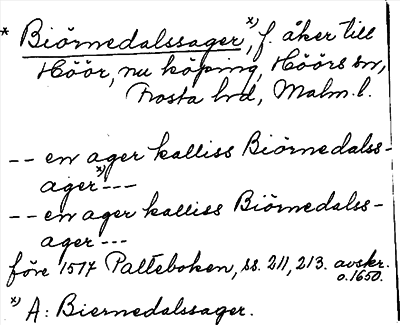 * Biörnedalssager,*) f. åker till
Höör, nu köping, Höörs sn,
Frosta hd, Malm. l.
-- en ager kalliss Biörnedalss-
ager*) ---
-- en ager kalliss Biörnedalss-
ager ---
före 1517 Palteboken, ss. 211, 213. avskr.
o. 1650.
*) A: Biernedalssager.